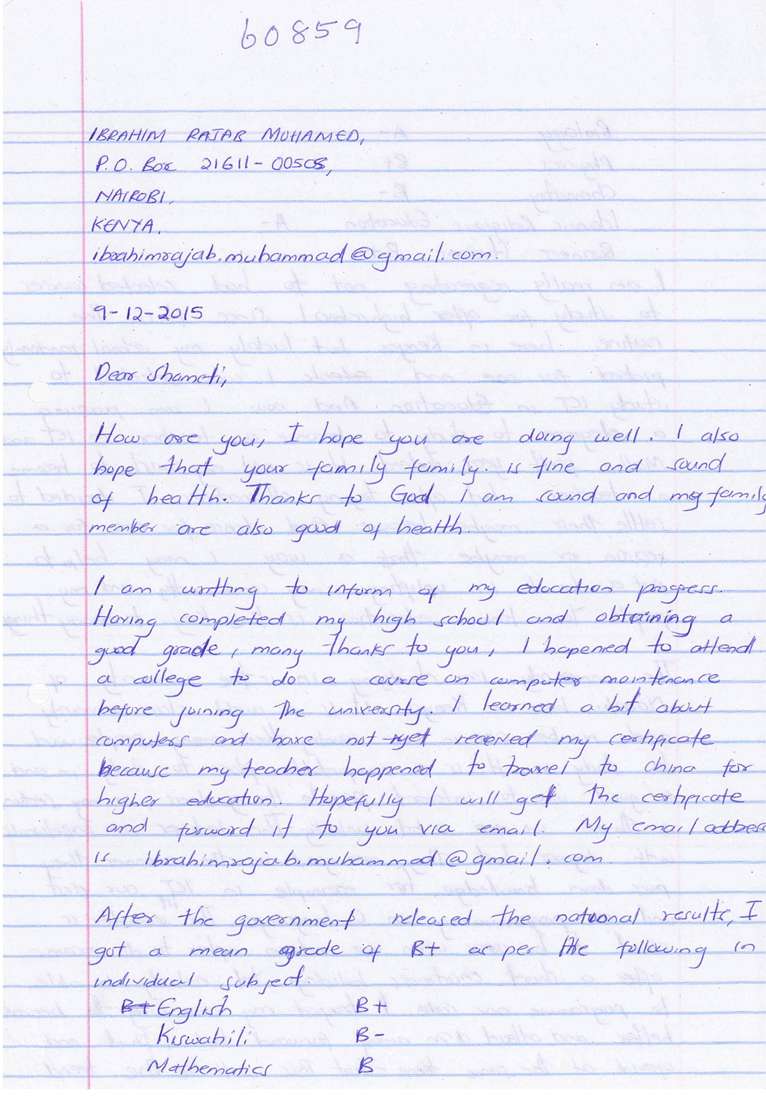 60859
IBRAHIM RAJAB MUHAMED,
P.O. Box 21611-00505,
NAIROBI,
KENYA.
ibrahimrajab.muhammad@gmail.com.
9-12-2015
Dear Shameti,
How are you, I hope you are doing well. I also
hope that your family family. is fine and sound
of health. Thanks to God I am sound and my family
member are also good of health.
I am writting to inform of my education progress.
Having completed my high school and obtaining a
good grade, many thanks to you, I hapened to attend
a college to do a course on computer maintenance
before joining the university. I learned a bit about
computers and have not yet received my certificate
because my teacher happened to travel to china for
higher education. Hopefully I will get the certificate
and forward it to you via email. My email addbess
is Ibrahimrajab.muhammad@gmail.com
After the government released the national results, I
got a mean grade of B+ as per the following in
individual subject.
B+ English B+
Kiswahili B-
Mathematics B